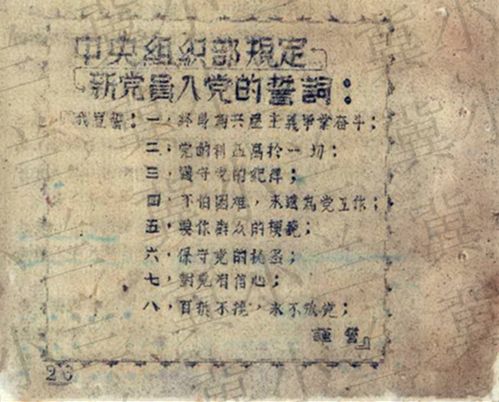 中央組织部規定
新党員入党的誓詞：
我宣誓：一，終身為共產主義事業奋斗；
二，党的利益高於一切；
三，遵守党的紀律；
四，不怕困难，永远為党工作；
五，要作群众的模範；
六，保守党的秘密；
七，對党有信心；
八，百折不撓，永不叛党；
謹誓』
26